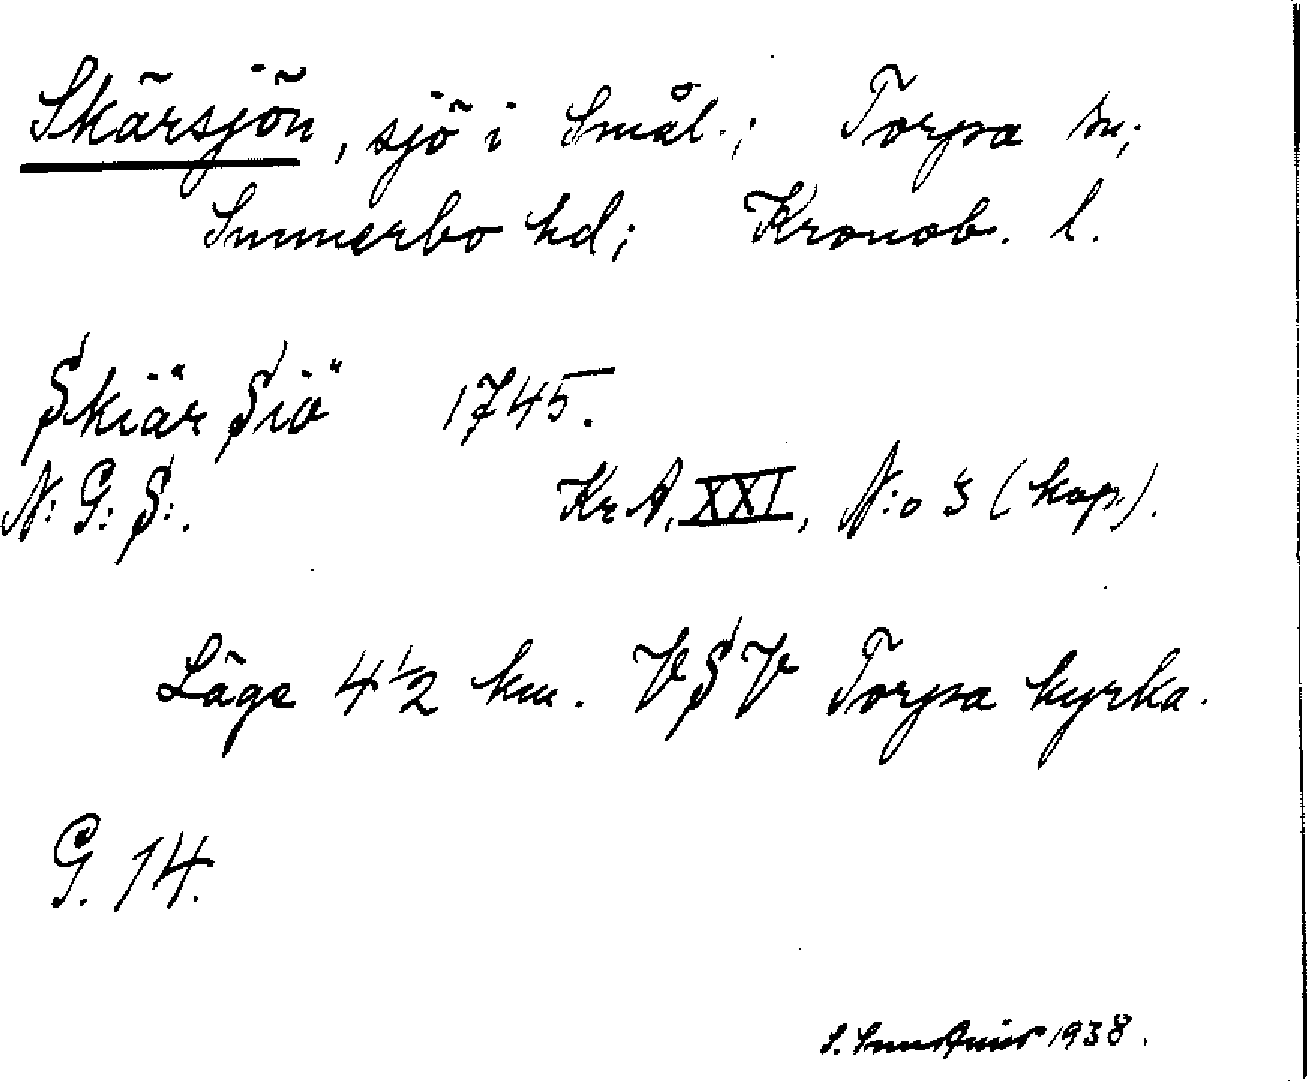 Skärsjön, sjö i Smål.; Torpa sn;
Sunnerbo hd; Kronob. l.
Skiär Siö 1745.
N: G: S:. Kr A, XXI, N:o 3 (kop.).
Läge 4 1/2 km. VSV Torpa kyrka.
G. 14.
S. 1938.